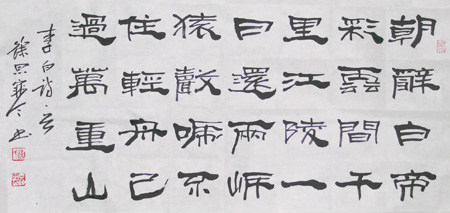 朝辭白帝
彩雲間千
里江陵一
日還兩岸
猿聲啼不
住輕舟已
過萬重山
李白詩
書